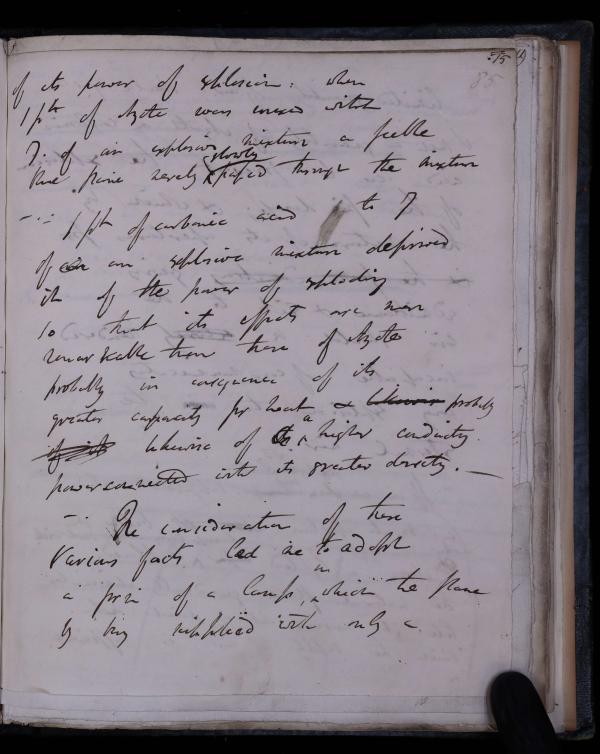 575
85
of its power of explosion: when
1 pt of Azote was mixed with
7. of an explosive mixture a feeble
blue flame merely slowly passed through the mixture
1 pt of carbonic acid to 7
of an explosive mixture deprived
it of the power of exploding
so that its effects are more
remarkable than those of Azote
probably in consequence of its
greater capacity for heat & likewise probably
of it likewise of a higher conducting
power connected with its greater density. —
The consideration of these
various facts led me to adopt
a form of a lamp, in which the flame
by being supplied with only a